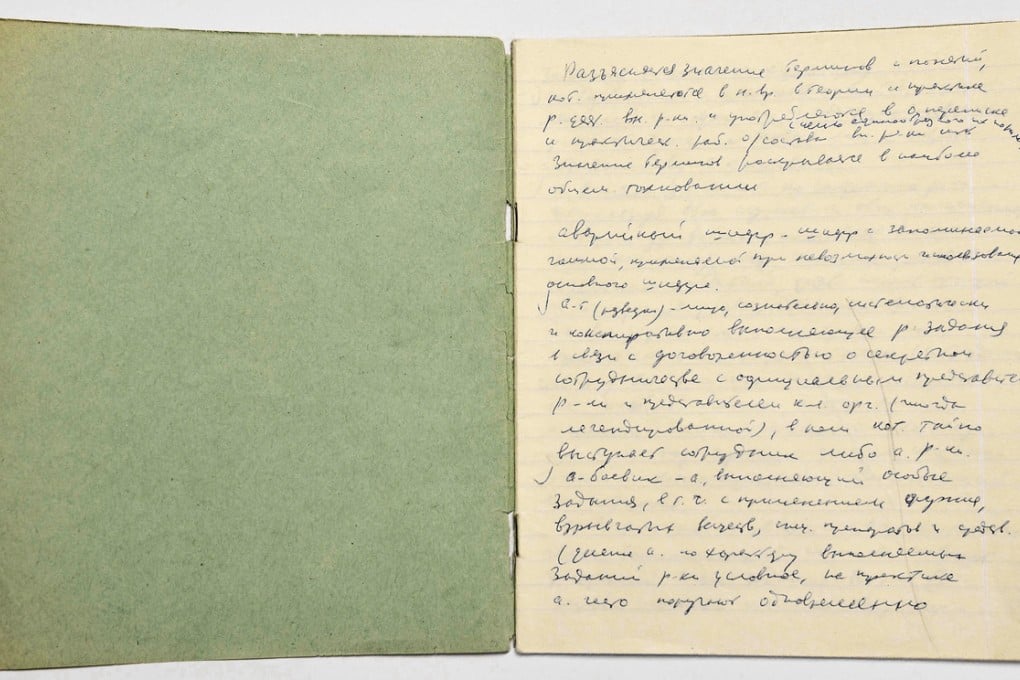 Разъясняется значение терминов и понятий,
кот. применяются в н. вр. в теории и практике
р. деят. вн. р-ки и употребляются в о. переписке
(с целью единообразного их
и практическ. раб. о/состава вн. р-ки
Значение терминов раскрывается в наиболее
общем толковании
аварийный шифр - шифр с запоминаемой
гаммой, применяемой при невозможности использования
основного шифра.
а-т (разведки) - лицо, сознательно, систематически
и конспиративно выполняющее р. задания
в связи с договоренностью о секретном
сотрудничестве с официальным представит.
р-ки и представителем к-л. орг. (иногда
легендированной), в кот. тайно
выступает сотрудник либо а. р-ки.
а-боевик - а, выполняющий особые
задания, в т. ч. с применением оружия,
взрывчатых веществ, спец. препаратов и средств.
(деление а. по характеру выполняемых
заданий р-ки условное, на практике
а. часто поручают одновременно